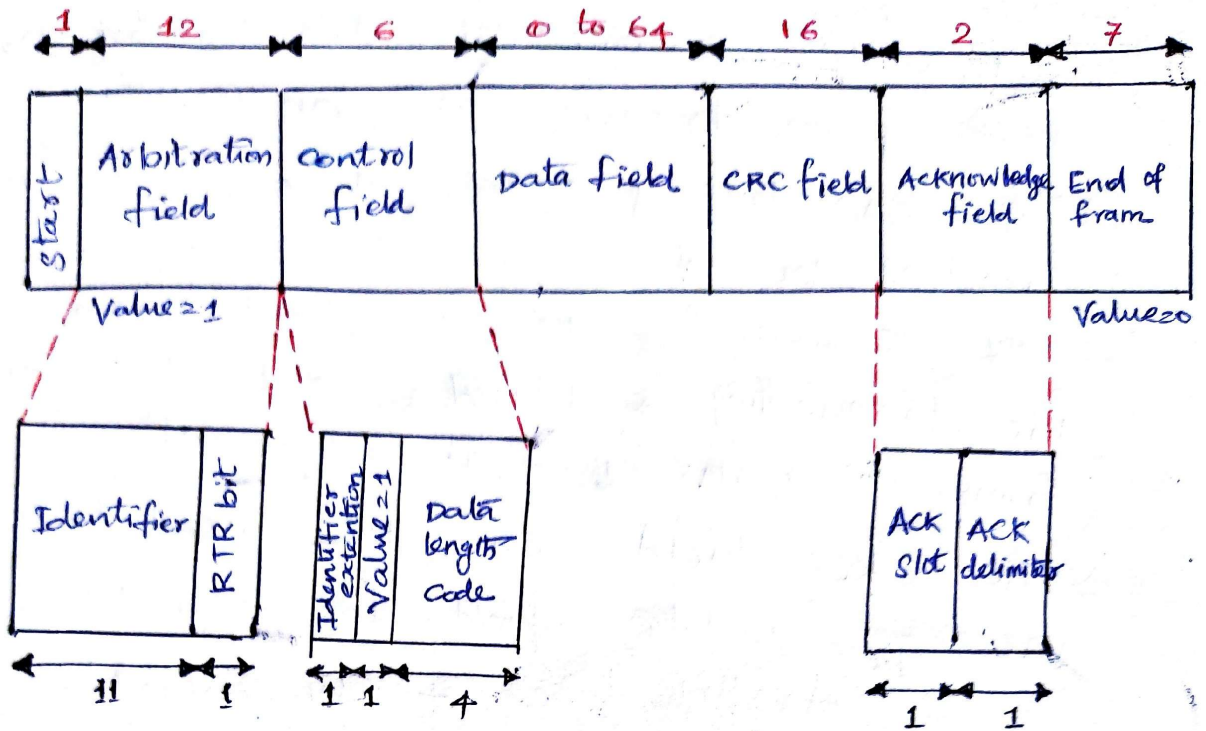 1 12 6 0 to 64 16 2 7
Start
Arbitration
field
control
field
Data field
CRC field
Acknowledge
field
End of
fram
Value=1
Value=0
Identifier
RTR bit
Identifier
extention
Value=1
Data
length
code
ACK
slot
ACK
delimiter
11 1
1 1 4
1 1